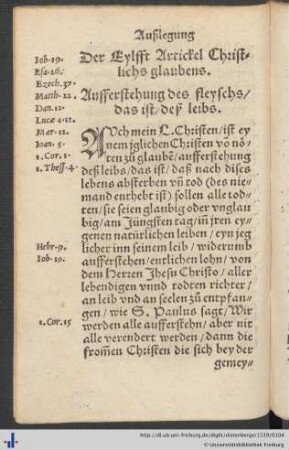 Außlegung
Der Eylfft Artickel Christ=
lichs glaubens.
Aufferstehung des fleyschs/
das ist/ deß leibs.
AUch mein L. Christen/ ist ey
nem jglichen Christen vō nö=
ten zů glaubē/ aufferstehung
deß leibs/ das ist/ daß nach dises
lebens absterbē vn̄ tod (des nie=
mand enthebt ist) sollen alle tod=
ten/ sie seien glaubig oder vnglau
big/ am Jüngsten tag/ in̄ jren ey=
genen natürlichen leiben/ eyn jeg
licher inn seinem leib/ widerumb
aufferstehen/ entlichen lohn/ von
dem Herzen Jhesu Christo/ aller
lebendigen vnnd todten richter/
an leib vnd an seelen zů entpfan=
gen/ wie S. Paulus sagt/ Wir
werden alle aufferstehn/ aber nit
alle verendert werden/ dann die
from̄en Christen die sich bey der
gemey=
Iob.19.
Esa.26.
Ezech.37.
Matth.22.
Dan.12.
Lucæ 4.12.
Mar.12.
Ioan.5.
1.Cor.1.
1.Thess.4.
Hebr.9.
Iob.19.
1.Cor.15
http://dl.ub.uni-freiburg.de/diglit/dietenberger1539/0104
© Universitätsbibliothek Freiburg